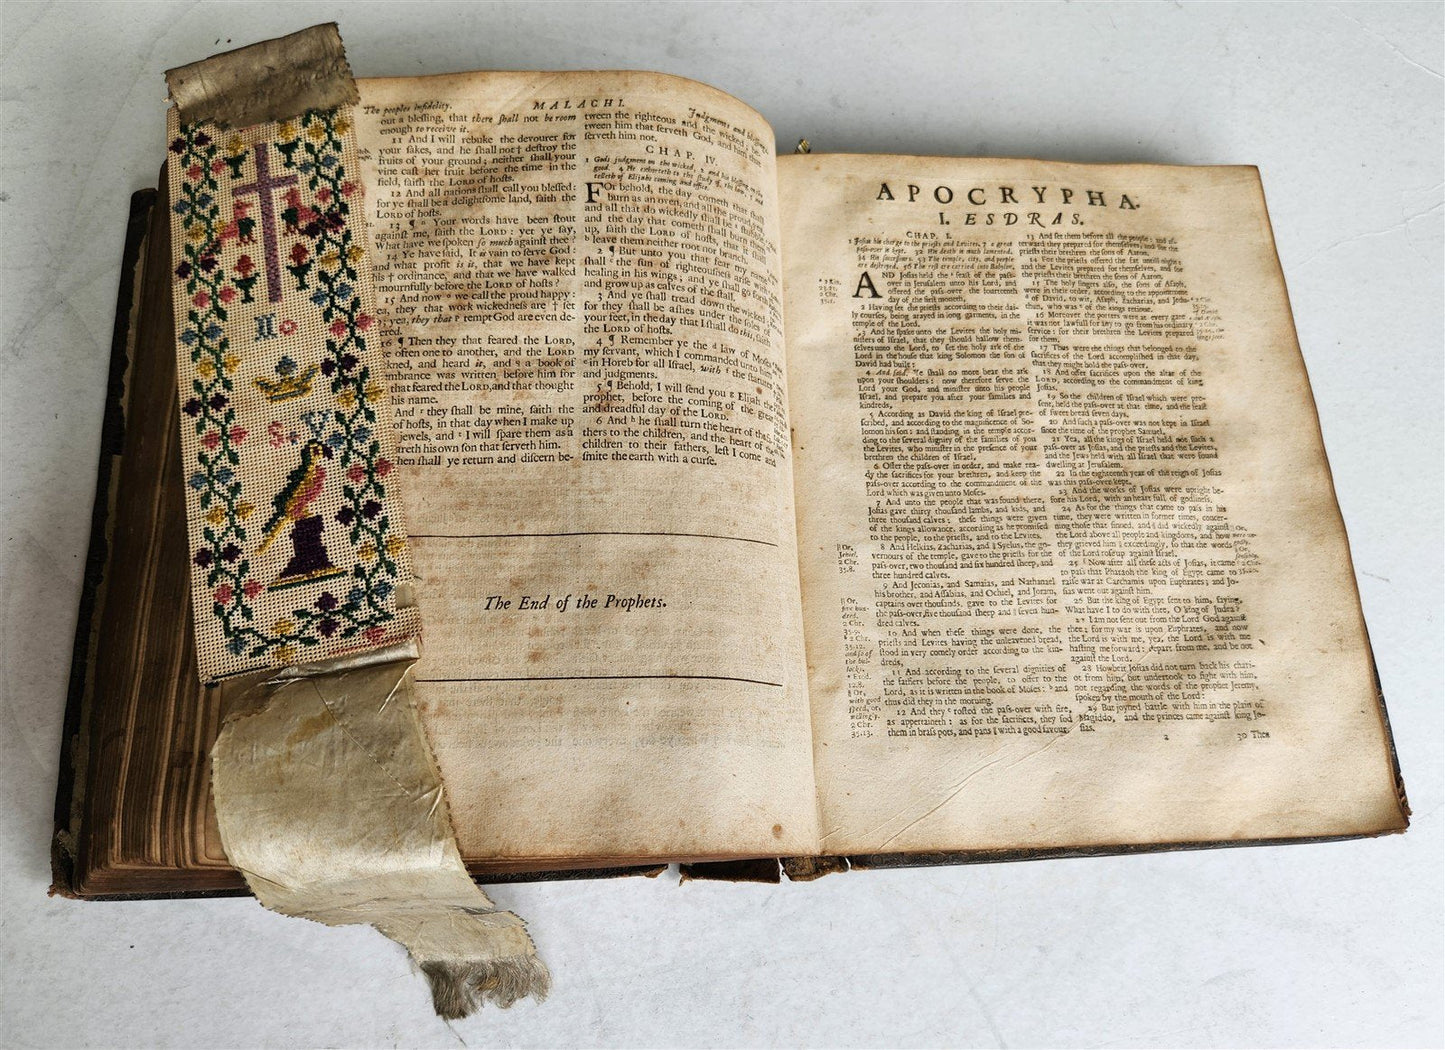 The peoples infidelity.
MALACHI.
Judgments and
out a blessing, that there ſhall not be room
enough to receive it.
11 And I will rebuke the devourer for
your ſakes, and he ſhall not † deſtroy the
fruits of your ground; neither ſhall your
vine caſt her fruit before the time in the
field, ſaith the LORD of hoſts.
12 And all nations ſhall call you bleſſed:
for ye ſhall be a delightſome land, ſaith the
LORD of hoſts.
13 ¶ Your words have been ſtout
againſt me, ſaith the LORD: yet ye ſay,
What have we ſpoken ſo much againſt thee?
14 Ye have ſaid, It is vain to ſerve God:
and what profit is it, that we have kept
his † ordinance, and that we have walked
mournfully before the LORD of hoſts?
15 And now we call the proud happy:
yea, they that work wickedneſs are † ſet
yea, they that tempt God are even de-
ered.
16 ¶ Then they that feared the LORD,
often one to another, and the LORD
kned, and heard it, and a book of
embrance was written before him for
that feared the LORD, and that thought
his name.
And they ſhall be mine, ſaith the
of hoſts, in that day when I make up
jewels, and I will ſpare them as a
areth his own ſon that ſerveth him.
hen ſhall ye return and diſcern be-
tween the righteous and the wicked; be-
tween him that ſerveth God, and him that
ſerveth him not.
CHAP. IV.
1 Gods judgment on the wicked, 2 and his bleſſing on the
good. 4 He exhorteth to the ſtudy of the law, 5 and
telleth of Elijahs coming and office.
FOr behold, the day cometh that ſhall
burn as an oven, and all the proud, yea,
and all that do wickedly ſhall be ſtubble,
and the day that cometh ſhall burn them
up, ſaith the LORD of hoſts, that it ſhall
leave them neither root nor branch.
2 ¶ But unto you that fear my name,
ſhall the ſun of righteouſneſs ariſe with
healing in his wings; and ye ſhall go forth
and grow up as calves of the ſtall.
3 And ye ſhall tread down the wicked;
for they ſhall be aſhes under the ſoles of
your feet, in the day that I ſhall do this, ſaith
the LORD of hoſts.
4 ¶ Remember ye the law of Moſes
my ſervant, which I commanded unto him
in Horeb for all Iſrael, with the ſtatutes
and judgments.
5 ¶ Behold, I will ſend you Elijah the
prophet, before the coming of the great
and dreadful day of the LORD.
6 And he ſhall turn the heart of the fa-
thers to the children, and the heart of the
children to their fathers, leſt I come and
ſmite the earth with a curſe.
The End of the Prophets.
APOCRYPHA.
I. ESDRAS.
CHAP. I.
1 Joſias his charge to the prieſts and Levites, 7 a great
paſs-over is kept. 32 His death is much lamented.
34 His ſucceſſours. 53 The temple, city, and people
are deſtroyed. 56 The reſt are carried into Babylon.
AND Joſias held the feaſt of the paſs-
over in Jeruſalem unto his Lord, and
offered the paſs-over the fourteenth
day of the firſt moneth,
2 Having ſet the prieſts according to their dai-
ly courſes, being arayed in long garments, in the
temple of the Lord.
3 And he ſpake unto the Levites the holy mi-
niſters of Iſrael, that they ſhould hallow them-
ſelves unto the Lord, to ſet the holy ark of the
Lord in the houſe that king Solomon the ſon of
David had built:
4 And ſaid, Ye ſhall no more bear the ark
upon your ſhoulders: now therefore ſerve the
Lord your God, and miniſter unto his people
Iſrael, and prepare you after your families and
kindreds,
5 According as David the king of Iſrael pre-
ſcribed, and according to the magnificence of So-
lomon his ſon: and ſtanding in the temple accor-
ding to the ſeveral dignity of the families of you
the Levites, who miniſter in the preſence of your
brethren the children of Iſrael,
6 Offer the paſs-over in order, and make rea-
dy the ſacrifices for your brethren, and keep the
paſs-over according to the commandment of the
Lord which was given unto Moſes.
7 And unto the people that was found there,
Joſias gave thirty thouſand lambs, and kids, and
three thouſand calves: theſe things were given
of the kings allowance, according as he promiſed
to the people, to the prieſts, and to the Levites.
8 And Helkias, Zacharias, and Syelus, the go-
vernours of the temple, gave to the prieſts for the
paſs-over, two thouſand and ſix hundred ſheep, and
three hundred calves.
9 And Jeconias, and Samaias, and Nathanael
his brother, and Aſſabias, and Ochiel, and Joram,
captains over thouſands, gave to the Levites for
the paſs-over, five thouſand ſheep and ſeven hun-
dred calves.
10 And when theſe things were done, the
prieſts and Levites having the unleavened bread,
ſtood in very comely order according to the kin-
dreds,
11 And according to the ſeveral dignities of
the fathers before the people, to offer to the
Lord, as it is written in the book of Moſes: and
thus did they in the morning.
12 And they roſted the paſs-over with fire,
as appertaineth: as for the ſacrifices, they ſod
them in braſs pots, and pans with a good ſavour,
13 And ſet them before all the people: and af-
terward they prepared for themſelves, and for the
prieſts their brethren the ſons of Aaron.
14 For the prieſts offered the fat until night:
and the Levites prepared for themſelves, and for
the prieſts their brethren the ſons of Aaron.
15 The holy ſingers alſo, the ſons of Aſaph,
were in their order, according to the appointment
of David, to wit, Aſaph, Zacharias, and Jedu-
thun, who was of the kings retinue.
16 Moreover the porters were at every gate
it was not lawfull for any to go from his ordinary
ſervice: for their brethren the Levites prepared
for them.
17 Thus were the things that belonged to the
ſacrifices of the Lord accompliſhed in that day,
that they might hold the paſs-over,
18 And offer ſacrifices upon the altar of the
LORD, according to the commandment of king
Joſias.
19 So the children of Iſrael which were pre-
ſent, held the paſs-over at that time, and the feaſt
of ſweet bread ſeven days.
20 And ſuch a paſs-over was not kept in Iſrael
ſince the time of the prophet Samuel.
21 Yea, all the kings of Iſrael held not ſuch a
paſs-over as Joſias, and the prieſts and the Levites,
and the Jews held with all Iſrael that were found
dwelling at Jeruſalem.
22 In the eighteenth year of the reign of Joſias
was this paſs-over kept.
23 And the works of Joſias were upright be-
fore his Lord, with an heart full of godlineſs.
24 As for the things that came to paſs in his
time, they were written in former times, concer-
ning thoſe that ſinned, and did wickedly againſt
the Lord above all people and kingdoms, and how
they grieved him exceedingly, ſo that the words
of the Lord roſe up againſt Iſrael.
25 Now after all theſe acts of Joſias, it came
to paſs that Pharaoh the king of Egypt came to
raiſe war at Carchamis upon Euphrates; and Jo-
ſias went out againſt him.
26 But the king of Egypt ſent to him, ſaying,
What have I to do with thee, O king of Judea?
27 I am not ſent out from the Lord God againſt
thee; for my war is upon Euphrates, and now
the Lord is with me, yea, the Lord is with me
haſting me forward: depart from me, and be not
againſt the Lord.
28 Howbeit Joſias did not turn back his chari-
ot from him, but undertook to fight with him,
not regarding the words of the prophet Jeremy,
ſpoken by the mouth of the Lord:
29 But joyned battle with him in the plain of
Magiddo, and the princes came againſt king Jo-
ſias.
2
30 Then